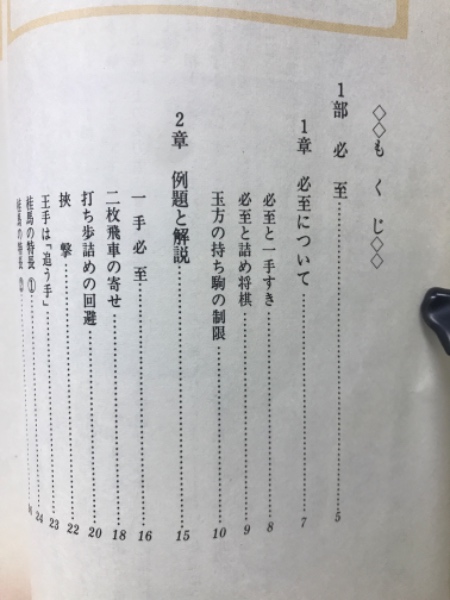 ◇◇もくじ◇◇
1部 必至……5
1章 必至について……7
必至と一手すき……8
必至と詰め将棋……9
玉方の持ち駒の制限……10
2章 例題と解説……15
一手必至……16
二枚飛車の寄せ……18
打ち歩詰めの回避……20
挾撃……22
王手は「追う手」……23
桂馬の特長①……24
桂馬の特長